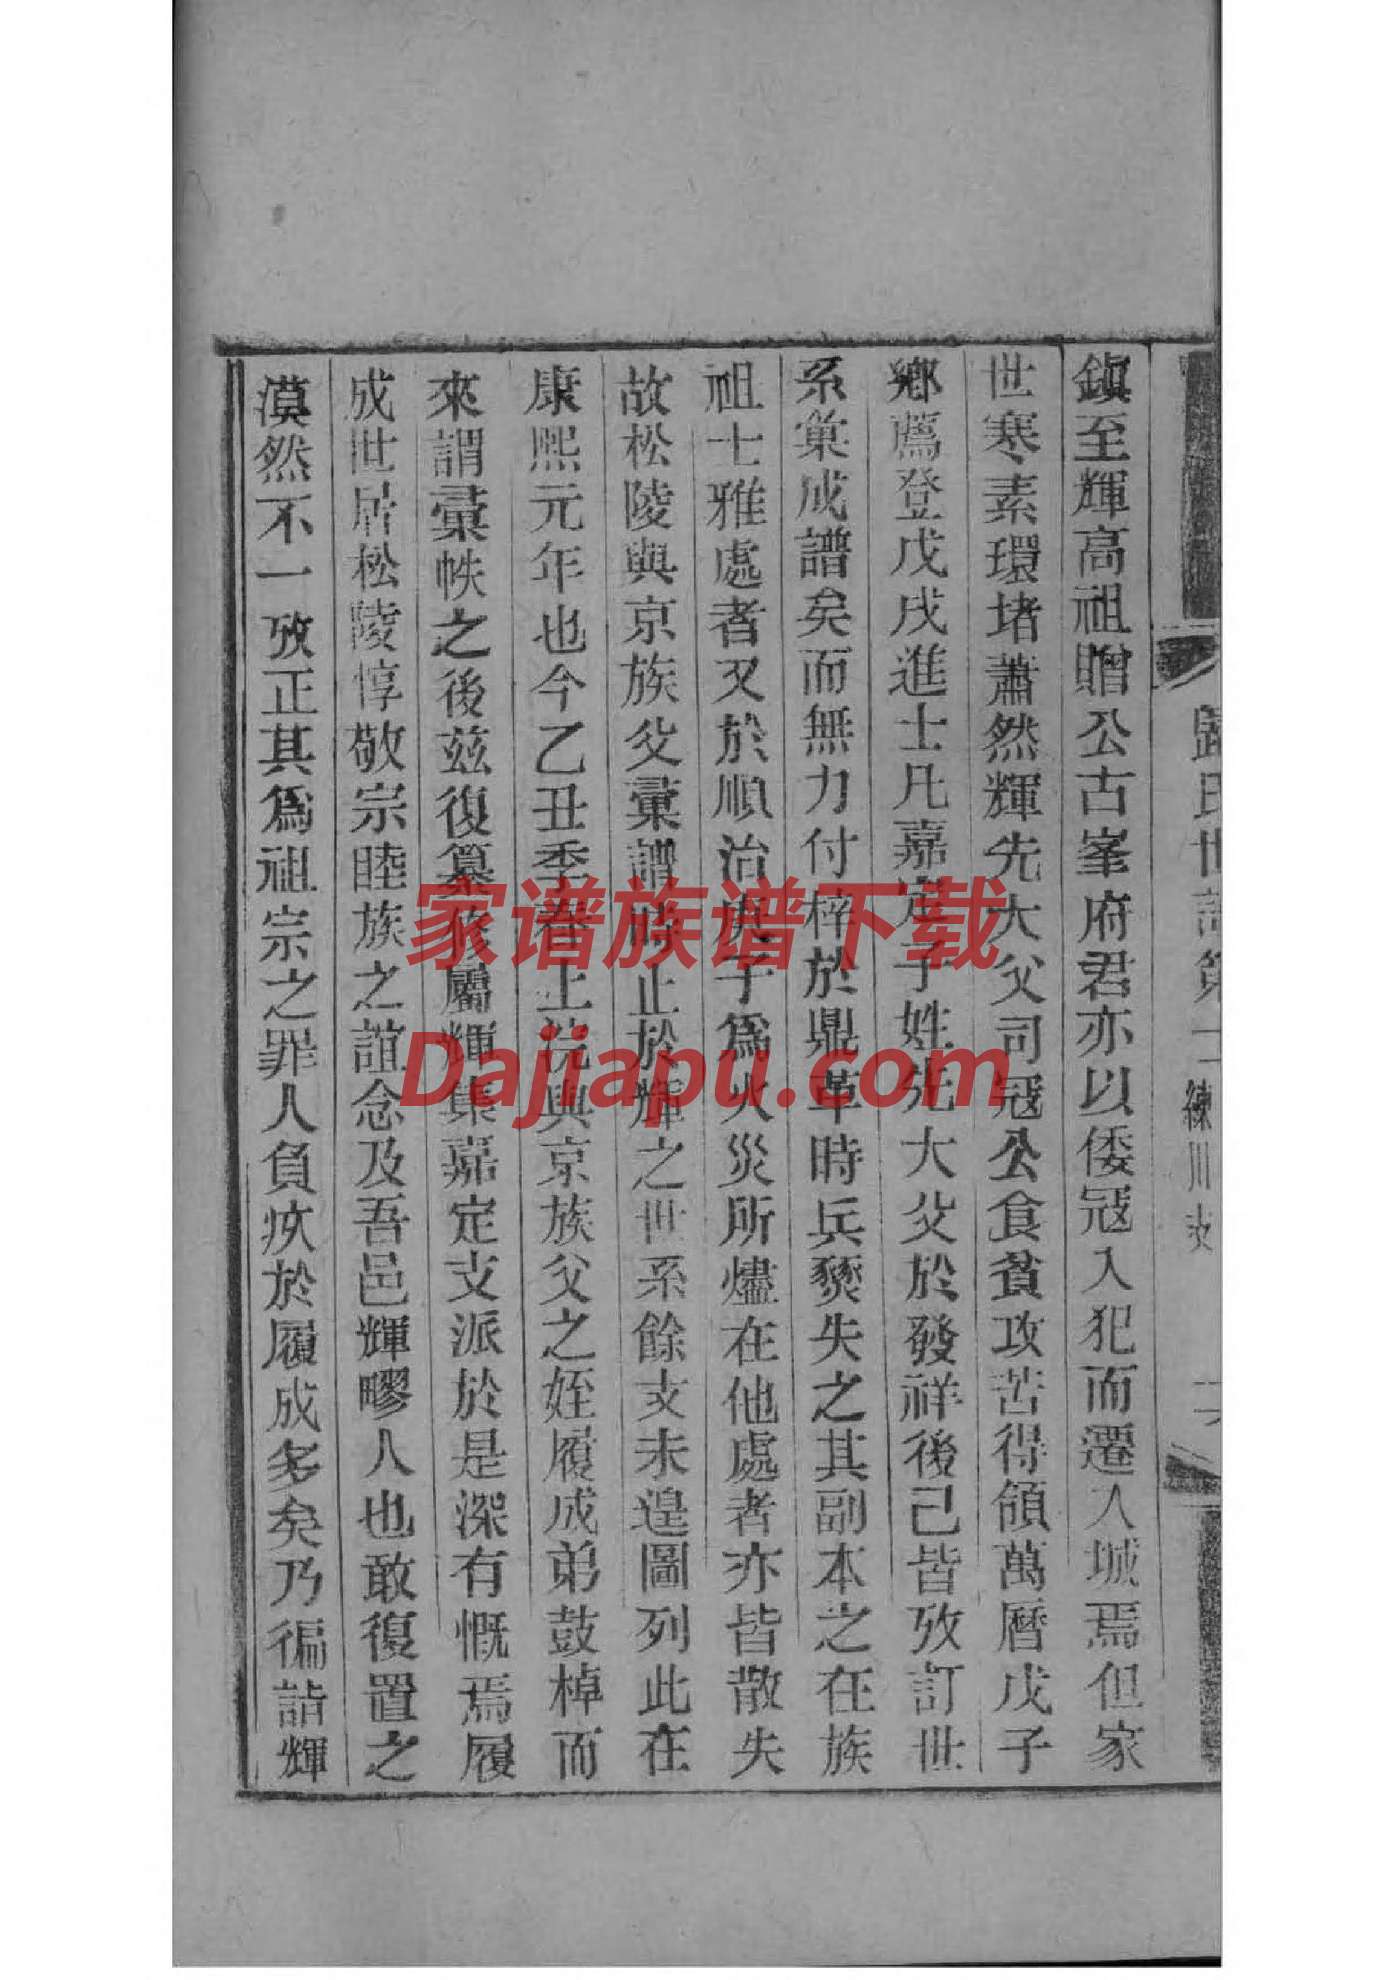 鎭至輝高祖贈公古峯府君亦以倭冦入犯而遷入城焉但家
世寒素環堵蕭然輝先大父司冦公食貧攻苦得領萬曆戊子
鄉薦登戊戌進士凡嘉定子姓先大父於發祥後己皆攷訂世
系彙成譜矣而無力付梓於鼎革時兵燹失之其副本之在族
祖士雅處者又於順治庚子爲火災所燼在他處者亦皆散失
故松陵與京族父彙譜時止於輝之世系餘支未遑圖列此在
康熙元年也今乙丑季春上浣與京族父之姪履成弟鼓棹而
來謂彙帙之後茲復纂修屬輝集嘉定支派於是深有慨焉履
成世居松陵惇敬宗睦族之誼念及吾邑輝瞜人也敢復置之
漠然不一攷正其爲祖宗之罪人負疚於履成多矣乃徧詣輝
歸氏世譜第二 練川支
家谱族谱下载
Dajiapu.com